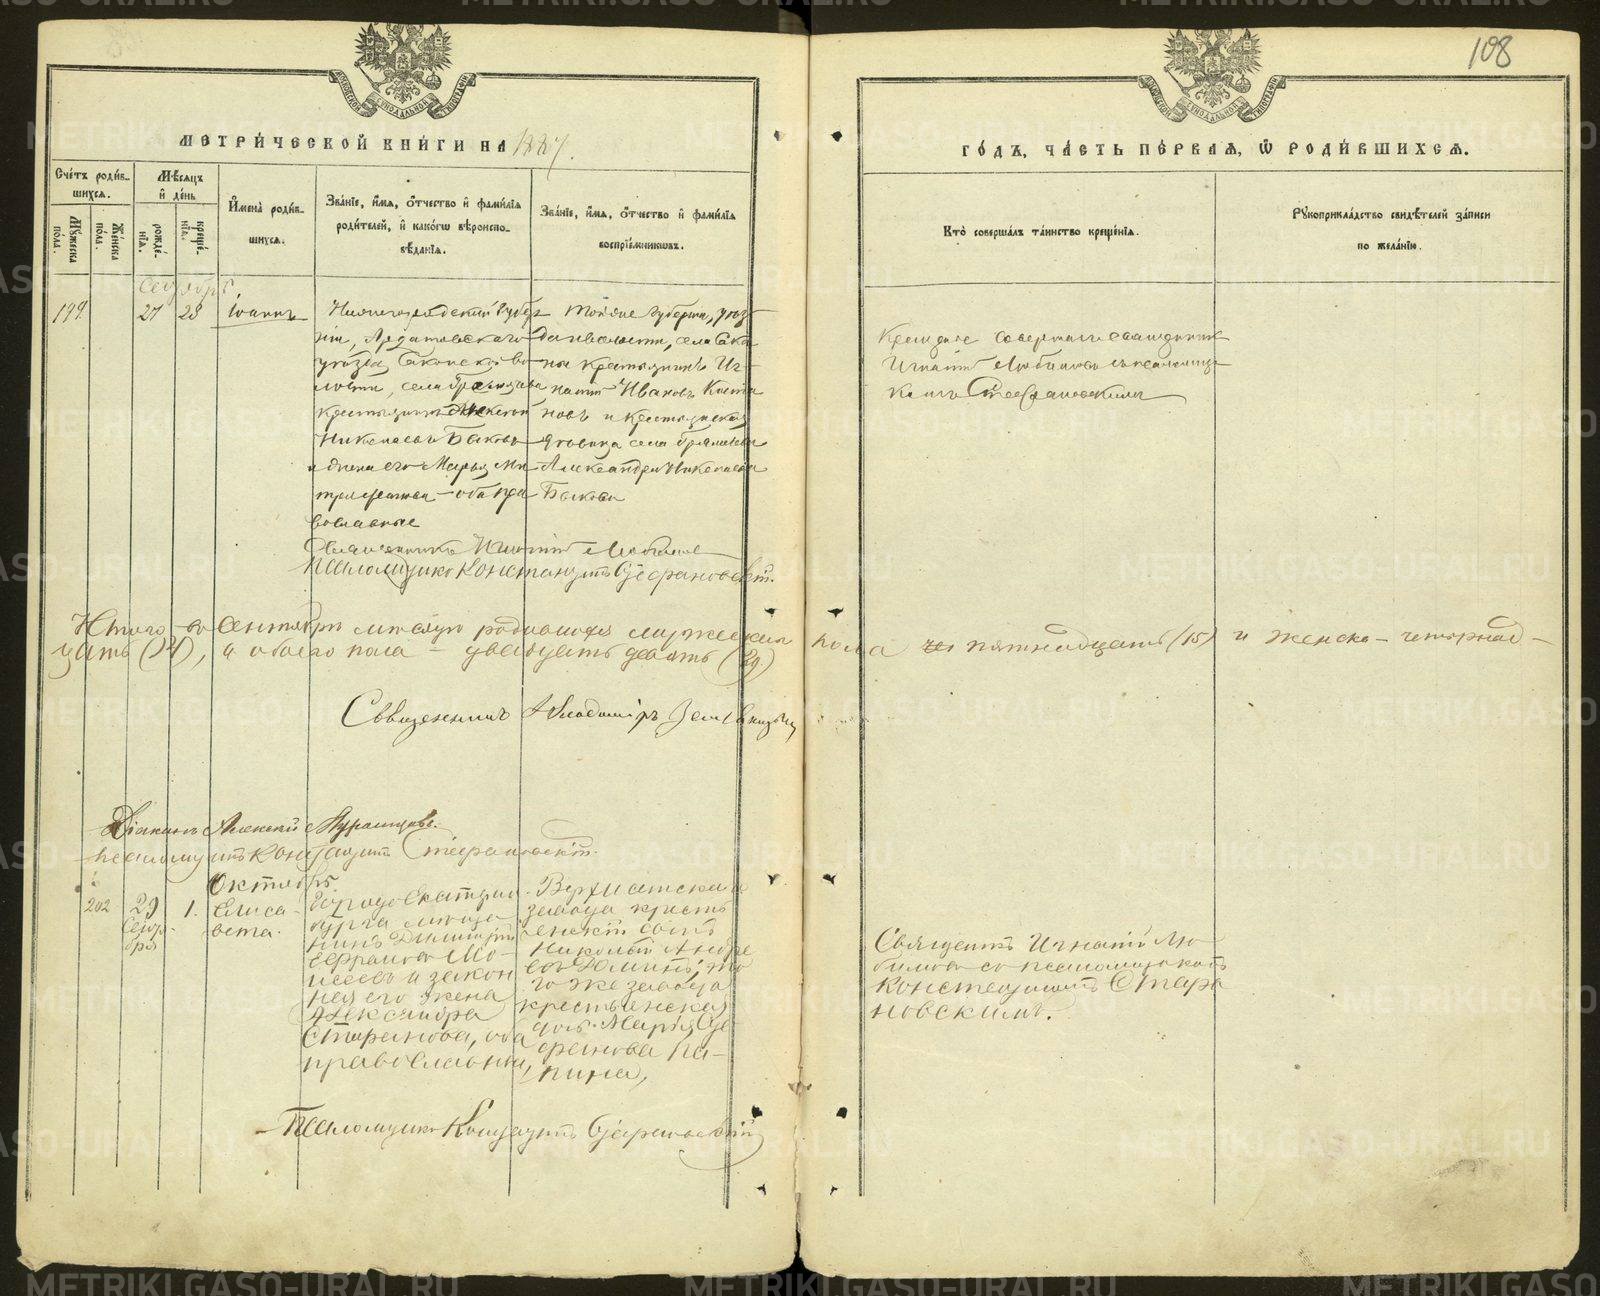 108
МЕТРИЧЕСКОЙ КНИГИ НА 1887.
ГОДЪ, ЧАСТЬ ПЕРВАЯ, Ѡ РОДИВШИХСЯ.
Счетъ родив-
шихся.
Мѣсяцъ
и день
Мужеска пола.
Женска пола.
рожде-
нія.
креще-
нія.
Имена родив-
шихся.
Званіе, имя, отчество и фамилія
родителей, и какогѡ вѣроиспо-
вѣданія.
Званіе, имя, отчество и фамилія
воспріемниковъ.
Кто совершалъ таинство крещенія.
Рукоприкладство свидѣтелей записи
по желанію.
Сентябрь
199.
27
28
Іоаннъ
Нижегородской Губер
ніи, Ардатовскаго
уѣзда, Саконской во
лости, села
крестьянинъ Алексѣй
Николаевъ Быковъ
и жена его Марья Ми
трофанова – оба пра
вославные
Тойже Губерніи, уѣз
да и волости, села Сако
на крестьянинъ Иг
натій Ивановъ Конста
новъ и крестьянская
дѣвица села
Александра Николаева
Быкова
Крещеніе совершалъ священникъ
Игнатій Любимовъ съ псаломщи
комъ Стефановскимъ
Священникъ Игнатій Любимовъ
Псаломщикъ Константинъ Стефановскій.
Итого въ Сентябрѣ мѣсяцѣ родившихся мужеска пола пятнадцать (15) и женска – четырнад –
цать (14), а обоего пола – двадцать девять (29)
Священникъ Владиміръ
Діаконъ Алексій
псаломщикъ Константинъ Стефановскій.
Октябрь
202
29
Сентя-
бря
1.
Елиса-
вета.
Города Екатерин-
бурга мѣща
нинъ Димитрій
Мо-
исеевъ и закон
ная его жена
Александра
Стефанова, оба
православные,
Верхисетскаго
завода кресть
янскій сынъ
Николай Андре
евъ; то
го же завода
крестьянская
дочь Марія Сте
фанова Па-
пина,
Священникъ Игнатій Лю-
бимовъ съ псаломщикомъ
Константиномъ Стефа
новскимъ.
Псаломщикъ Константинъ Стефановскій
METRIKI.GASO-URAL.RU